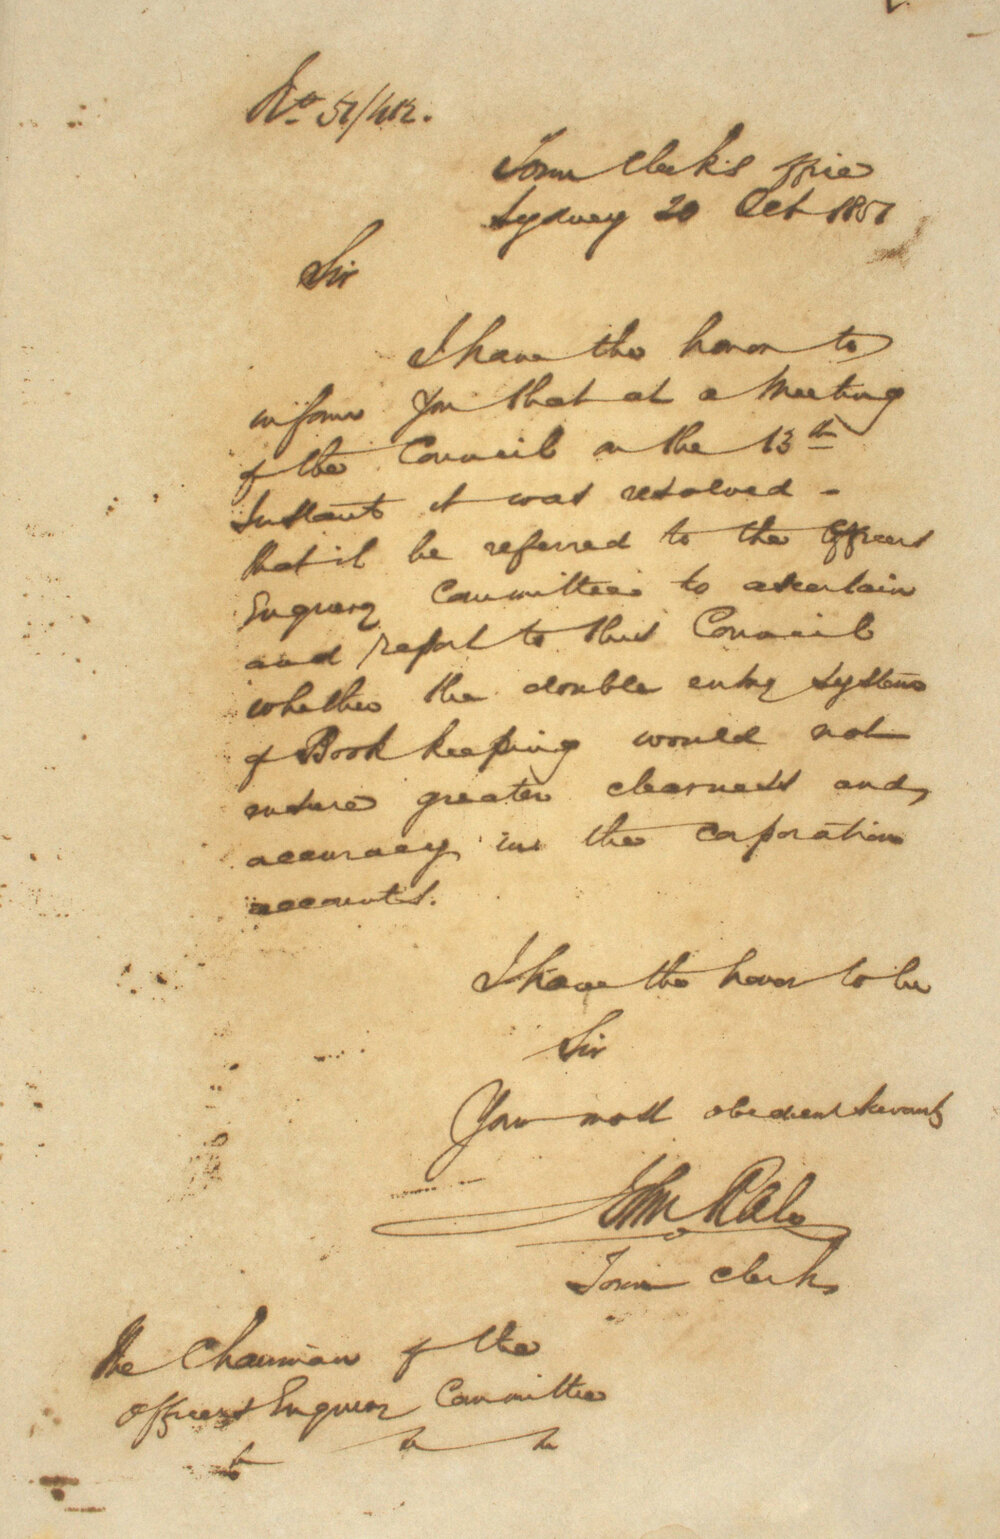 No. 57/412.
Town Clerk's Office
Sydney 20 Oct 1857
Sir
I have the honor to
inform you that at a Meeting
of the Council on the 13th
Instant it was resolved -
that it be referred to the Officers
Enquiry Committee to ascertain
and report to this Council
whether the double entry system
of Book keeping would not
ensure greater clearness and
accuracy in the corporation
accounts.
I have the honor to be
Sir
Your most obedient servant
John Rae
Town Clerk
The Chairman of the
Officers Enquiry Committee